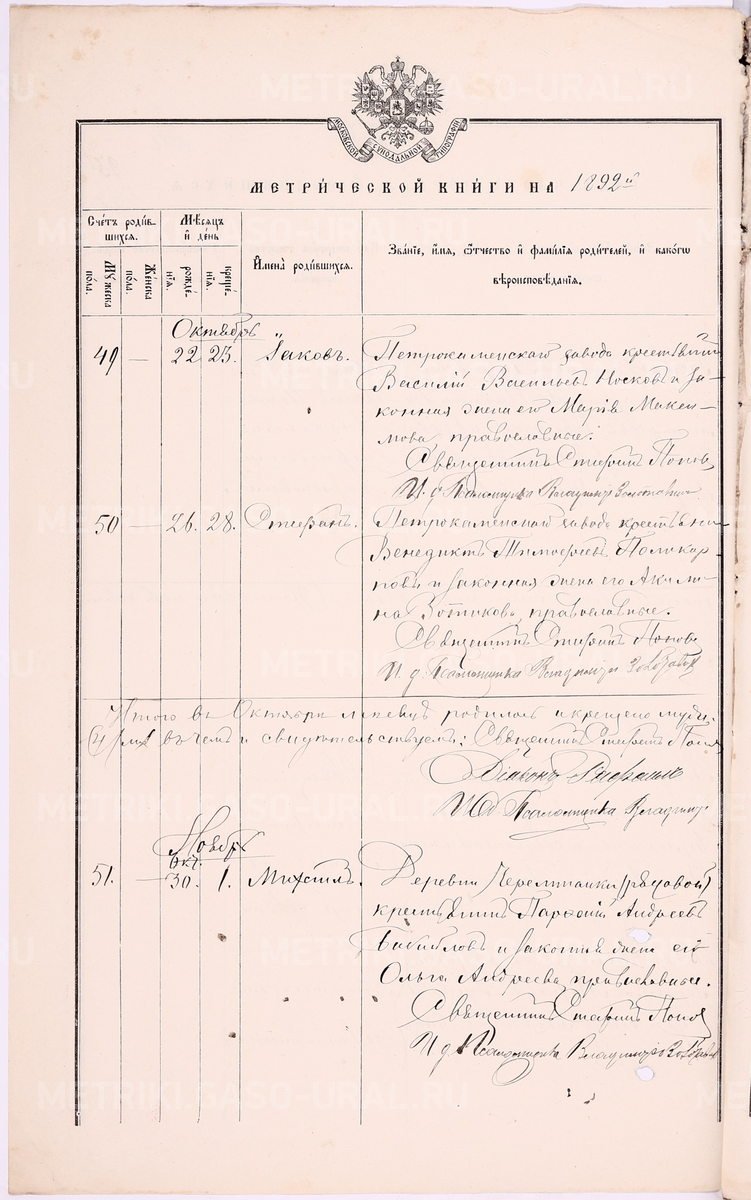 МОСКОВСКОЙ СѴНОДАЛЬНОЙ ТИПОГРАФІИ
МЕТРИ́ЧЕСКОЙ КНИ́ГИ НА 1892й
Сче́тъ роди́вшихся.
Му́жеска пола.
Же́нска пола.
Мѣ́сяцъ и де́нь
рожде́нія.
креще́нія.
Имена̀ роди́вшихся.
Зва́ніе, и́мя, ѻ́тчество и҆ фами́лія роди́телей, и҆ како́гѡ
вѣроисповѣ́данія.
Октябрь
49 — 22 23. Іаковъ. Петрокаменскаго завода крестьянинъ
Василій Васильевъ Носковъ и за-
конная жена его Марія Макси-
мова, православные.
Священникъ Стефанъ Поповъ
И. д. Псаломщика Владиміръ
50 — 26. 28. Стефанъ. Петрокаменскаго завода крестьянинъ
Венедиктъ Тимофеевъ Поликар-
повъ и законная жена его Акили-
на Зотикова, православные.
Священникъ Стефанъ Поповъ
И. д. Псаломщика Владиміръ
Итого въ Октябрѣ мѣсяцѣ родилось и крещено муж.
въ чемъ и свидѣтельствуемъ: Священникъ Стефанъ Поповъ
Діаконъ
И. д. Псаломщика Владиміръ
Ноябрь
Окт.
51. — 30. 1. Михаилъ. Деревни Черемшанки
крестьянинъ Парѳеній Андреевъ
и законная жена его
Ольга Андреева, православные.
Священникъ Стефанъ Поповъ
И. д. Псаломщика Владиміръ
METRIKI.BASO-URAL.RU